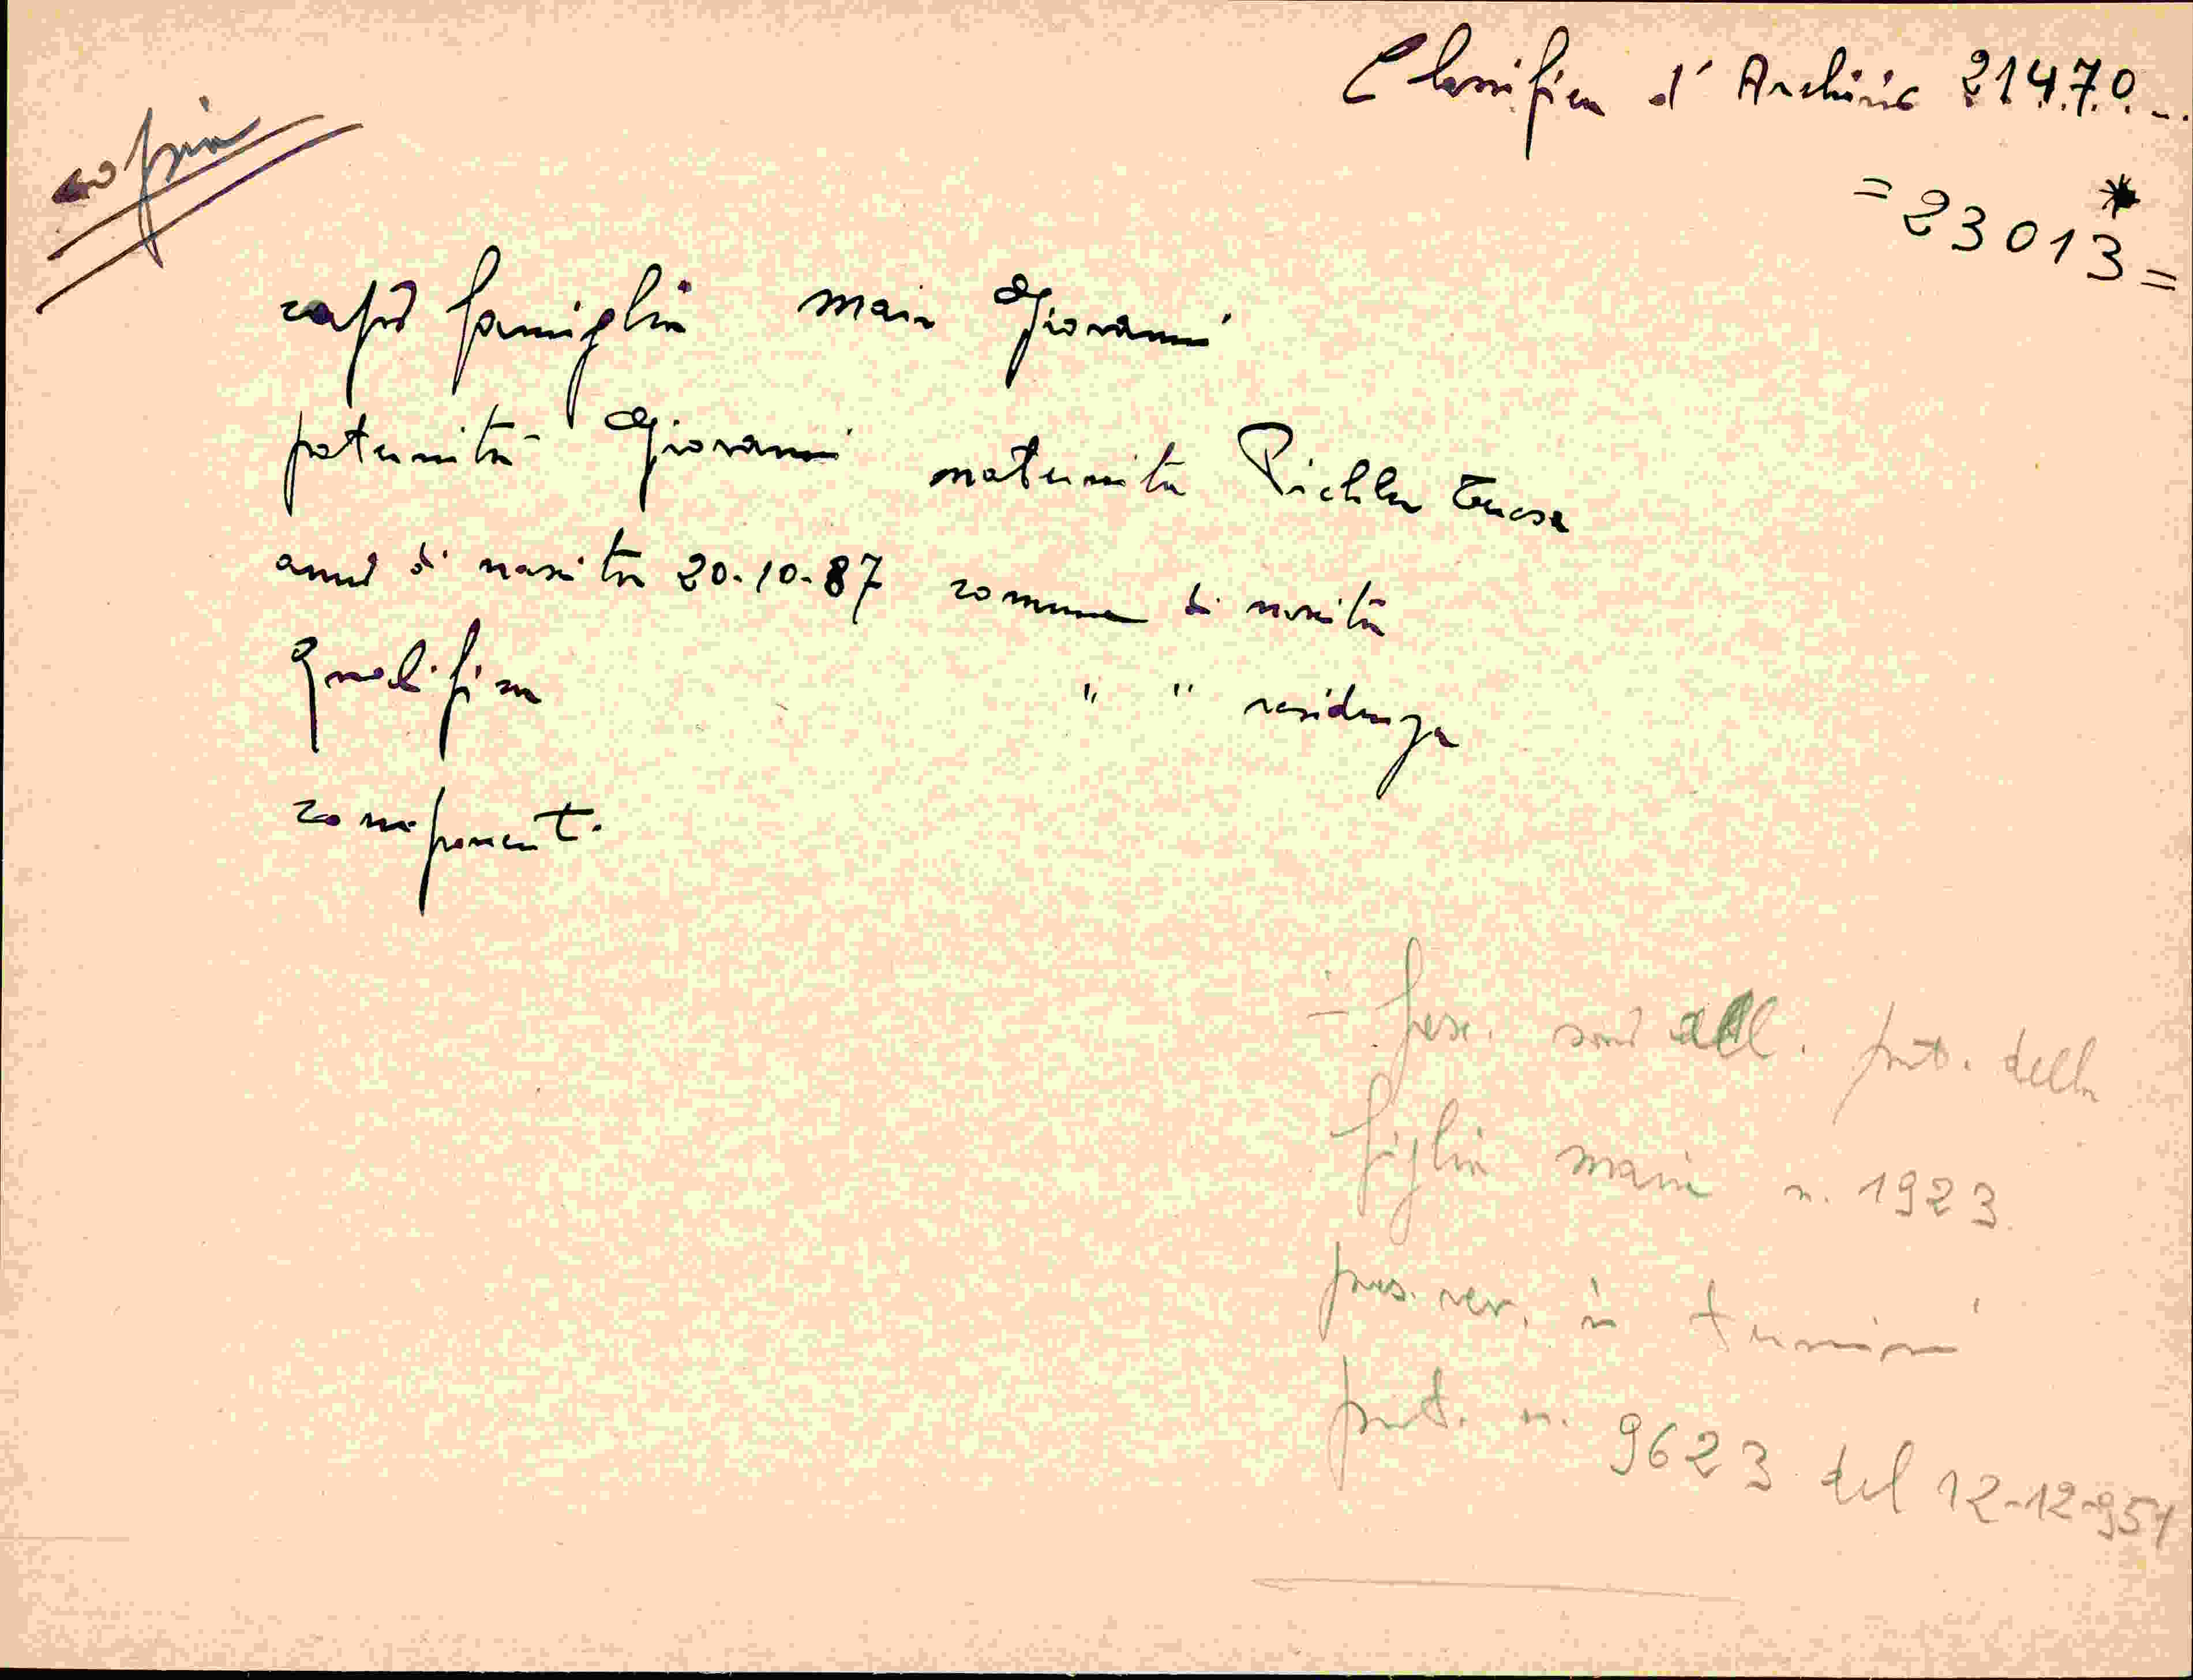 Classifica d'Archivio 21470
copia
= 23013 =
capo famiglia Mair Giovanni
paternità Giovanni maternità Pichler Teresa
anno di nascita 20-10-87 comune di nascita
Qualifica " " residenza
componenti
- fasc. sono all. prat. della
figlia Maria n. 1923
pres. rev. in termini
prot. n. 9623 del 12-12-951